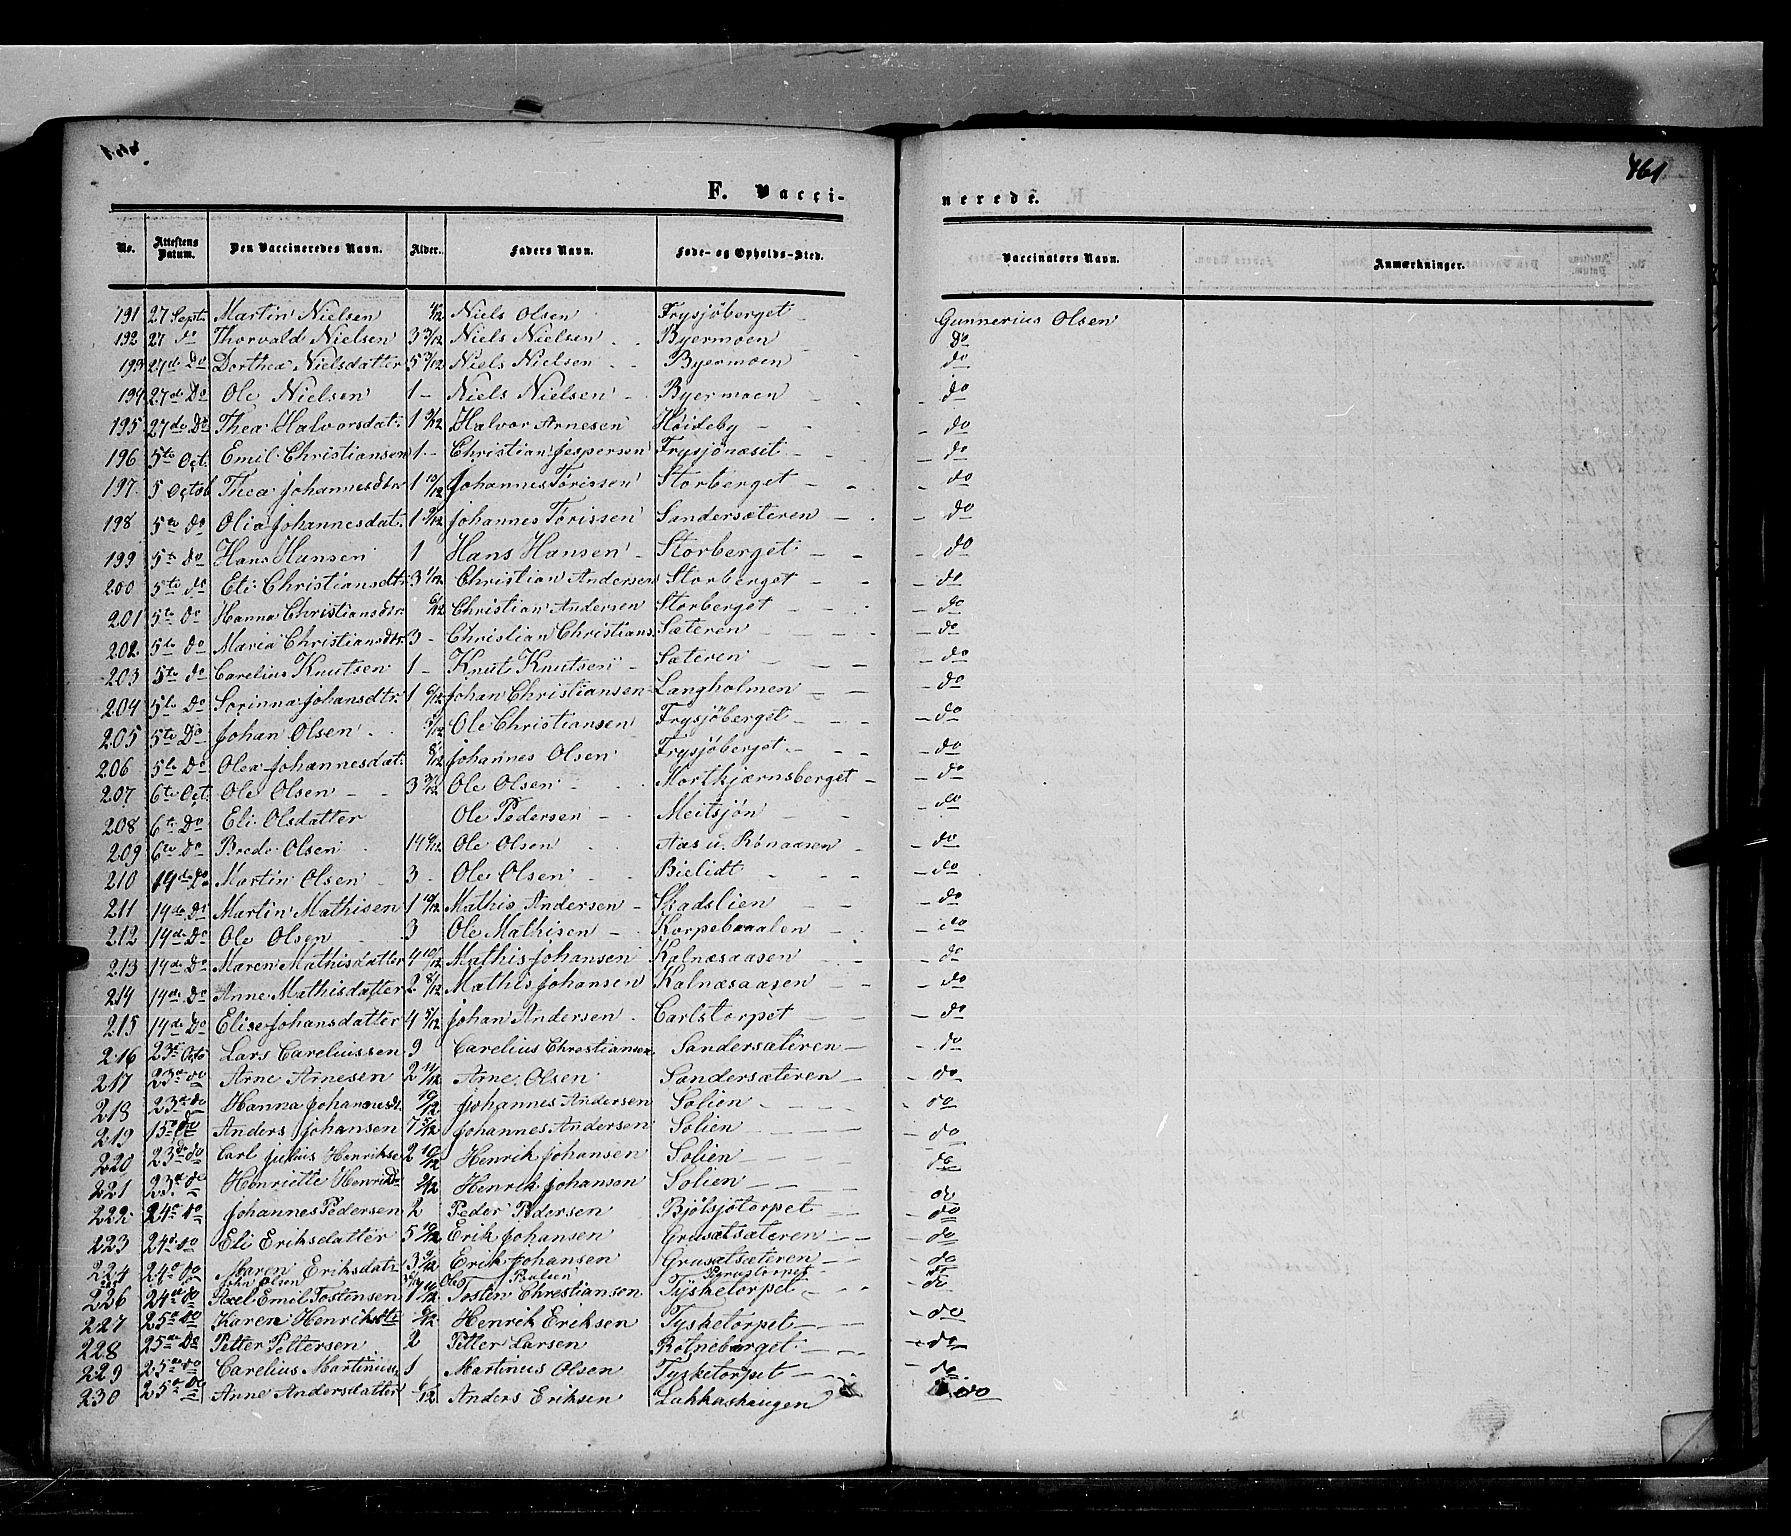 461
F. Vacci-
nerede.
No. Attestens Datum. Den Vaccineredes Navn. Alder. Faders Navn. Føde- og Opholds-Sted. Vaccinators Navn. Anmærkninger.
191 27 Sept. Martin Nielsen 4/12 Niels Olsen Frysjöberget Gunnerius Olsen
192 27 do Thorvald Nielsen 3 3/12 Niels Nielsen Byermoen do
193 27de Do Dorthea Nielsdatter 5 3/12 Niels Nielsen Byermoen do
194 27de Do Ole Nielsen 1 - Niels Nielsen Byermoen do
195 27de Do Thea Halvorsdat. 1 Halvor Arnesen Höideby do
196 5te Oct. Emil Christiansen 1 - Christian Jespersen Frysjönæsit do
197 5 Octob Thea Johannesdtr 1 10/12 Johannes Torissen Storberget do
198 5te do Olia Johannesdat. 1 9/12 Johannes Torissen Sandersæteren do
199 5te do Hans Hansen 1 Hans Hansen Storberget do
200 5te do Eli Christiansdtr 3 1/12 Christian Andersen Storberget do
201 5te Do Hanna Christiansdtr. 6/12 Christian Andersen Storberget do
202 5te Do Maria Christiansdtr 3 - Christian Christians. Sæteren do
203 5te Do Carelius Knutsen 1 - Knut Knutsen Sæteren do
204 5te Do Sorinna Johansdtr 1 6/12 Johan Christiansen Langholmen do
205 5te Do Johan Olsen Ole Christiansen Frysjöberget do
206 5te Do Olea Johannesdat. 8/12 Johannes Olsen Frysjöberget do
207 6te Oct. Ole Olsen 3 3/12 Ole Olsen Mortkjærnsberget do
208 6te Do Eli Olsdatter Ole Pedersen Meitsjön do
209 6te Do Brede Olsen 14 Ole Olsen Aas u. Rönaasen do
210 14de Do Martin Olsen 3 - Ole Olsen Bielidt do
211 14de Do Martin Mathisen 1 10/12 Mathis Andersen Skadslien do
212 14de Do Ole Olsen 3 Ole Mathisen Korpebraalen do
213 14de Do Maren Mathisdatter 4 10/12 Mathis Johansen Kalnæsaasen do
214 14de Do Anne Mathisdatter 2 8/12 Mathis Johansen Kalnæsaasen do
215 14de Do Elise Johansdatter 4 5/12 Johan Andersen Carlstorpet do
216 23de Octo Lars Careliussen 9 Carelius Christiansen Sandersæteren do
217 23de do Arne Arnesen 2 11/12 Arne Olsen Sandersæteren do
218 23de do Hanna Johannesdt. 10/12 Johannes Andersen Solien do
219 15de do Anders Johansen 7 5/12 Johannes Andersen Solien do
220 23de do Carl Julius Henrikse 2 10/12 Henrik Johansen Solien do
221 23de do Henriette HenriDr. Henrik Johansen Solien do
222 24de do Johannes Pedersen 2 Peder Pedersen Bjölsjötorpet do
223 24de do Eli Eriksdatter 5 10/12 Erik Johansen Grusætsæteren do
224 24de do Maren Eriksdatr 3 Erik Johansen Grusætsæteren do
225 John Olsen Ole Paulsen do
226 24de do Axel Emil Tostensen 1 Tosten Christiansen Tysketorpet do
227 25de do Karen Henriksdtr 6/12 Henrik Eriksen Tysketorpet do
228 25de Do Petter Pettersen 2 Petter Larsen Rotneberget do
229 25de do Carelius Martinius. 1 Martinus Olsen Tysketorpet do
230 25de do Anne Andersdatter /12 Anders Eriksen Lukkashaugen do